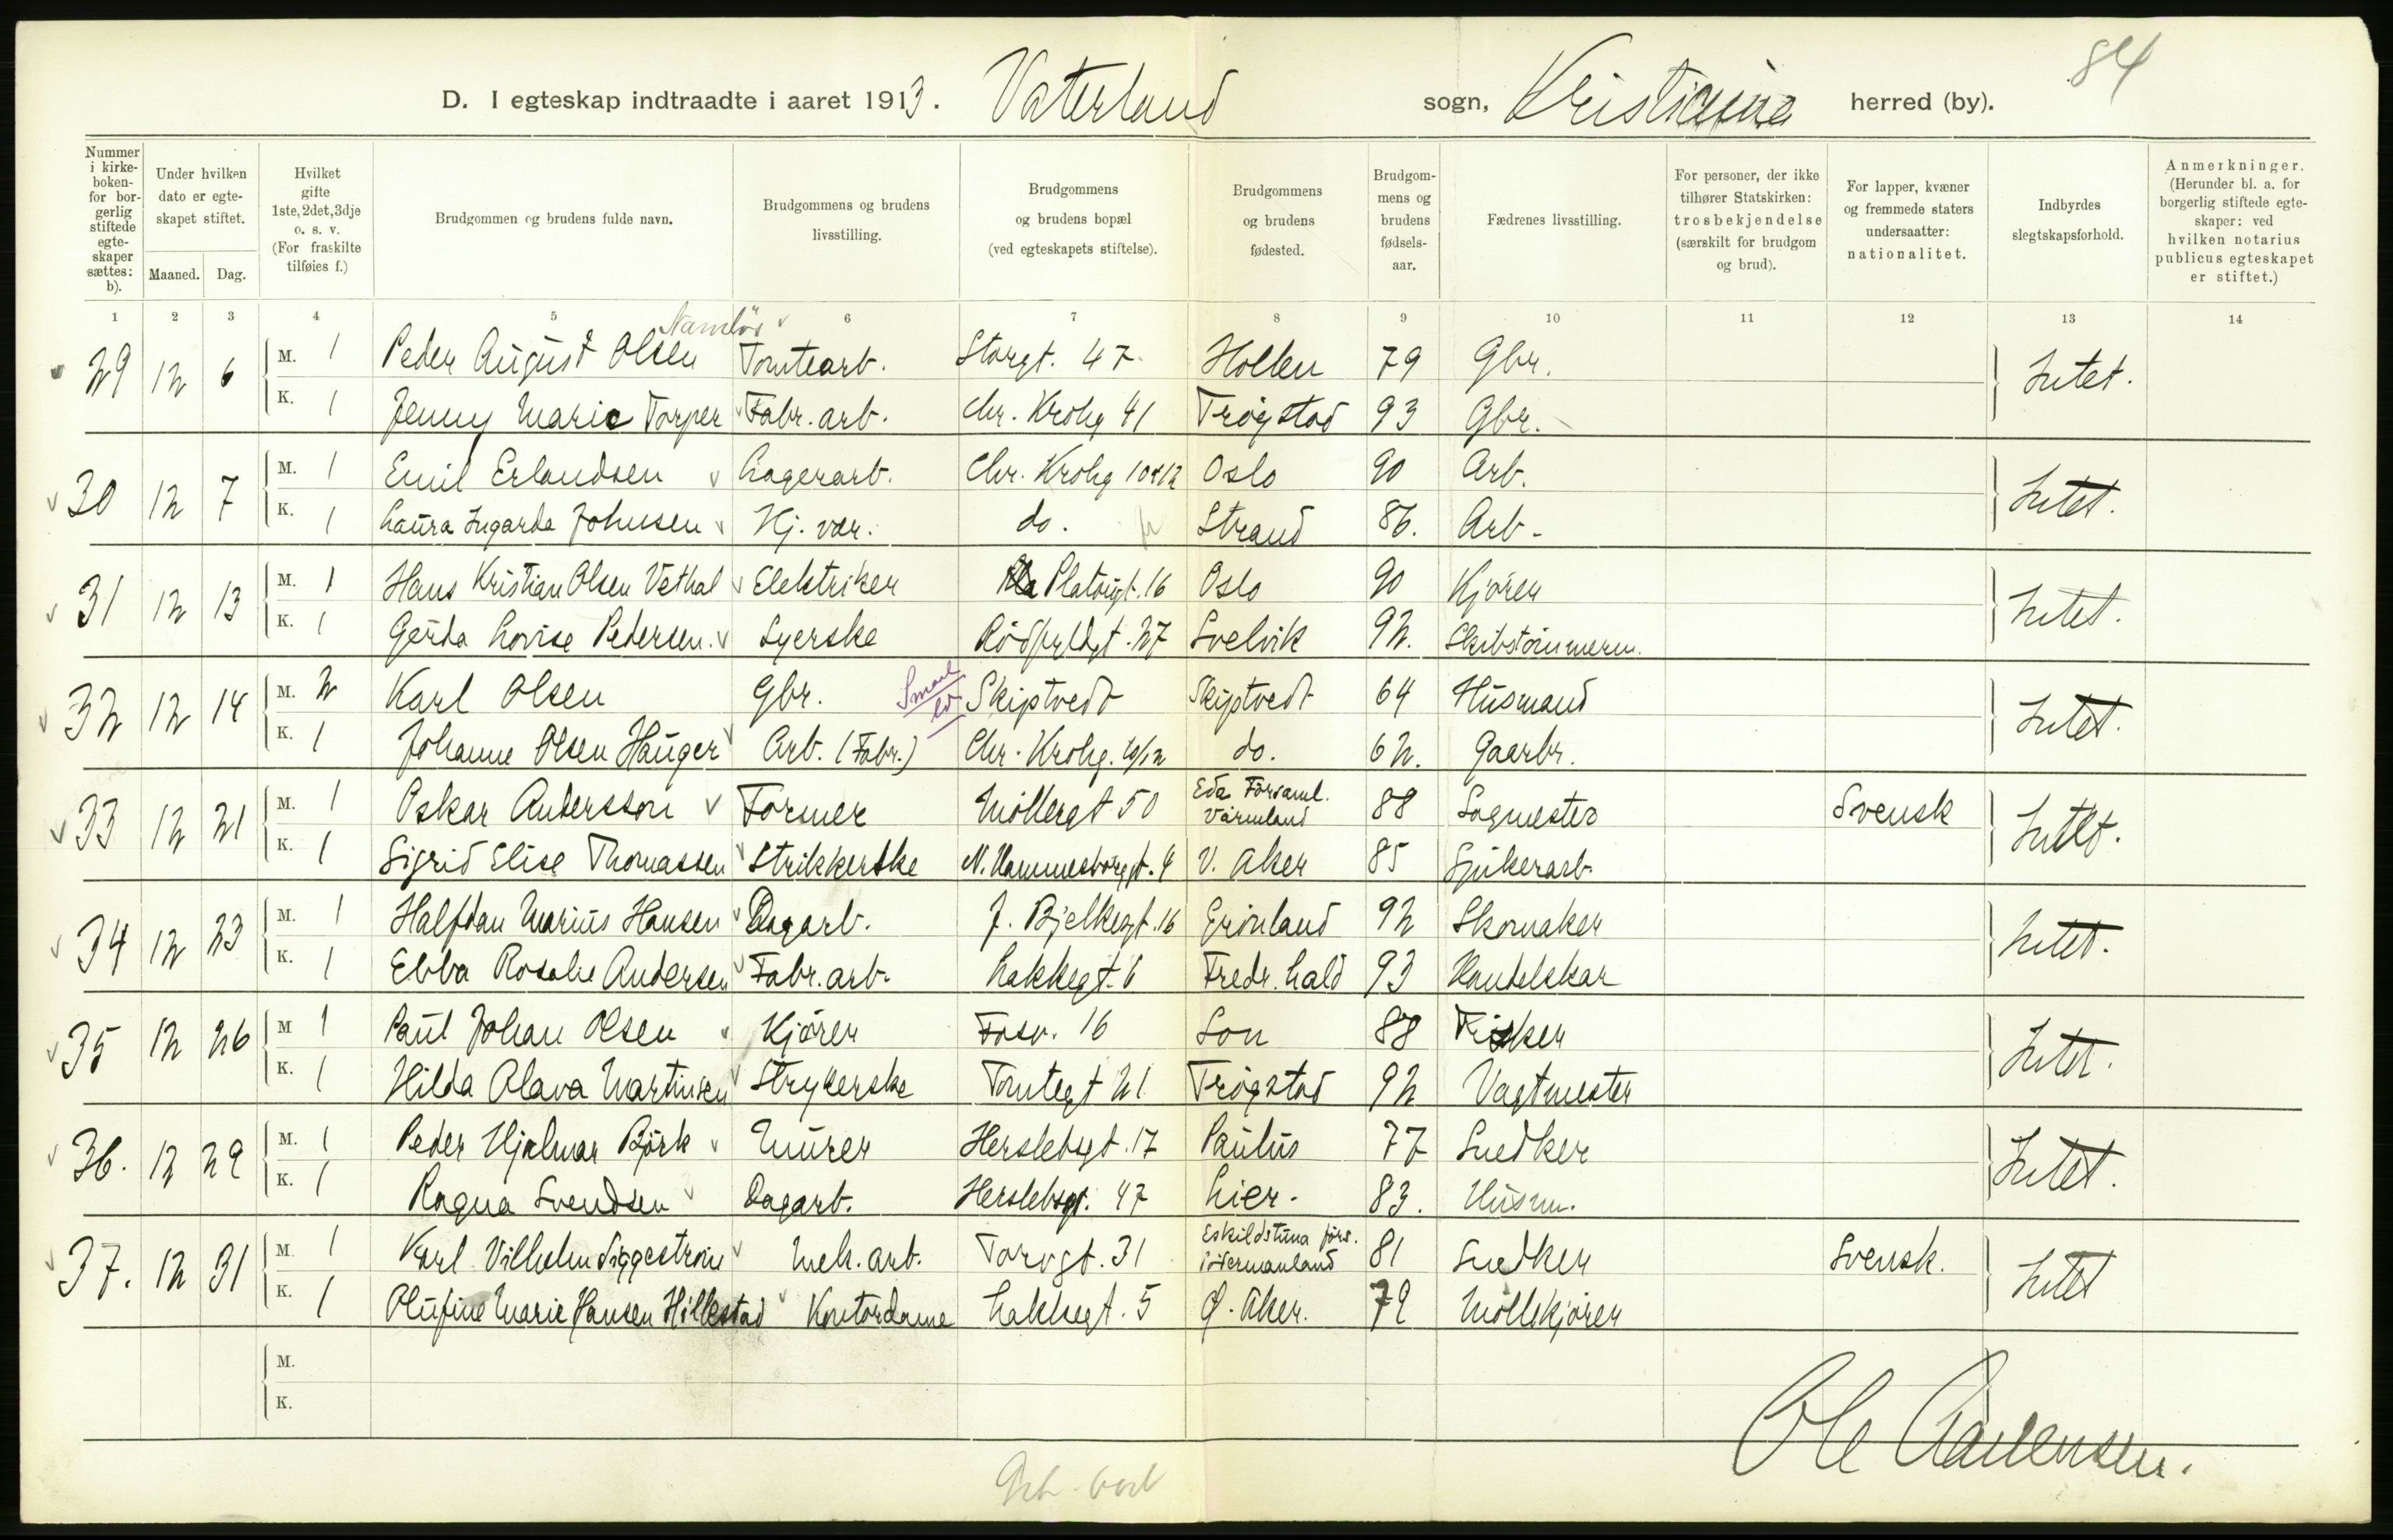 84
D. I egteskap indtraadte i aaret 1913. Vaterland sogn, Kristiania herred (by).
Nummer i kirkeboken- for borgerlig stiftede egteskaper sættes: b).
Under hvilken dato er egteskapet stiftet.
Maaned. Dag.
Hvilket gifte 1ste, 2det, 3dje o. s. v. (For fraskilte tilføies f.)
Brudgommen og brudens fulde navn.
Brudgommens og brudens livsstilling.
Brudgommens og brudens bopæl (ved egteskapets stiftelse).
Brudgommens og brudens fødested.
Brudgommens og brudens fødselsaar.
Fædrenes livsstilling.
For personer, der ikke tilhører Statskirken: trosbekjendelse (særskilt for brudgom og brud).
For lapper, kvæner og fremmede staters undersaatter: nationalitet.
Indbyrdes slegtskapsforhold.
Anmerkninger. (Herunder bl. a. for borgerlig stiftede egteskaper: ved hvilken notarius publicus egteskapet er stiftet.)
1 2 3 4 5 6 7 8 9 10 11 12 13 14
Namløs
29 12 6 M. 1 Peder August Olsen Tomtearb. Storgt. 47 Hollen 79 Gbr. Intet.
K. 1 Jenny Marie Torper Fabr. arb. Chr. Krohg 41 Trøgstad 93 Gbr.
30 12 7 M. 1 Emil Erlandsen Lagerarb. Chr. Krohg 10x12 Oslo 90 Arb. Intet.
K. 1 Laura Ingarda Johnsen Kj. vær. do. Strand 86. Arb.
31 12 13 M. 1 Hans Kristian Olsen Vethal Elektriker Platougt. 16 Oslo 90 Kjører Intet.
K. 1 Gerda Lovise Pedersen. Syerske Rødfyldgt. 27 Svelvik 92. Skibstømmerm.
32 12 14 M. 2 Karl Olsen Gbr. Skiptvedt Skiptvedt 64 Husmand Intet.
K. 1 Johanne Olsen Hauger Arb. (Fabr.) Chr. Krohg. 10/12 do. 62. Gaarbr.
33 12 21 M. 1 Oskar Andersson Former Møllergt 50 Eda Forsaml. Värmland 88 Sagmester Svensk Intet.
K. 1 Sigrid Elise Thomassen Strikkerske N. Hammersborggt. 4 V. Aker 85 Spikerarb.
34 12 23 M. 1 Halfdan Marius Hansen Dagarb. J. Bjelkesgt. 16 Grønland 92 Skomaker Intet.
K. 1 Ebba Rosalie Andersen Fabr. arb. Lakkegt. 6 Fredr. hald 93 Handelskar
35 12 26 M 1 Paul Johan Olsen Kjører Fosv. 16 Son 88 Fisker Intet.
K. 1 Hilda Olava Martinsen Strykerske Tomtegt 21 Trøgstad 92 Vagtmester
36. 12 29 M. 1 Peder Hjalmar Björk Murer Herslebsgt. 17 Paulus 77 Snedker Intet.
K. 1 Ragna Svendsen Dagarb. Herslebsgt. 47 Lier. 83. Husm.
37. 12 31 M. 1 Karl Vilhelm Siggeström Mek. arb. Torvgt. 31 Eskildstuna förs. Södermanland 81 Snedker Svensk. Intet
K. 1 Olufine Marie Hansen Hillestad Kontordame Lakkegt. 5 Ø. Aker. 79 Møllekjører
M.
K.